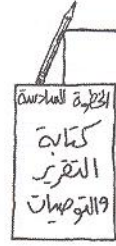 الخطوة السادسة
كتابة
التقرير
والتوصيات